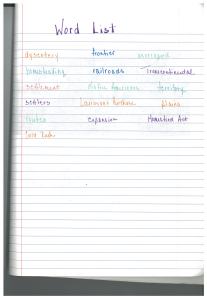 Word List
dysentery frontier
homesteading railroads Transcontinental
settlement Native Americans territory
settlers Louisiana Purchase plains
routes expansion Homestead Act